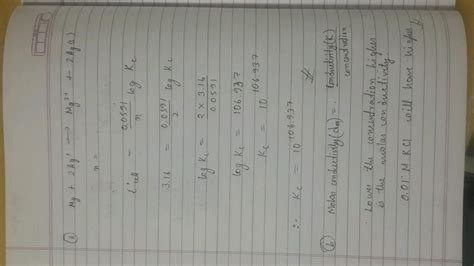 (a) Mg + 2Ag⁺ → Mg²⁺ + 2Ag(s)
n =
E°cell = 0.0591/n log Kc
3.16 = 0.0591/2 log Kc
log Kc = 2 × 3.16 / 0.0591
log Kc = 106.937
Kc = 10^106.937
∴ Kc = 10^106.937
(b) Molar conductivity (Λm) = Conductivity (K) / concentration
Lower the concentration higher
is the molar conductivity
0.01 M KCl will have higher